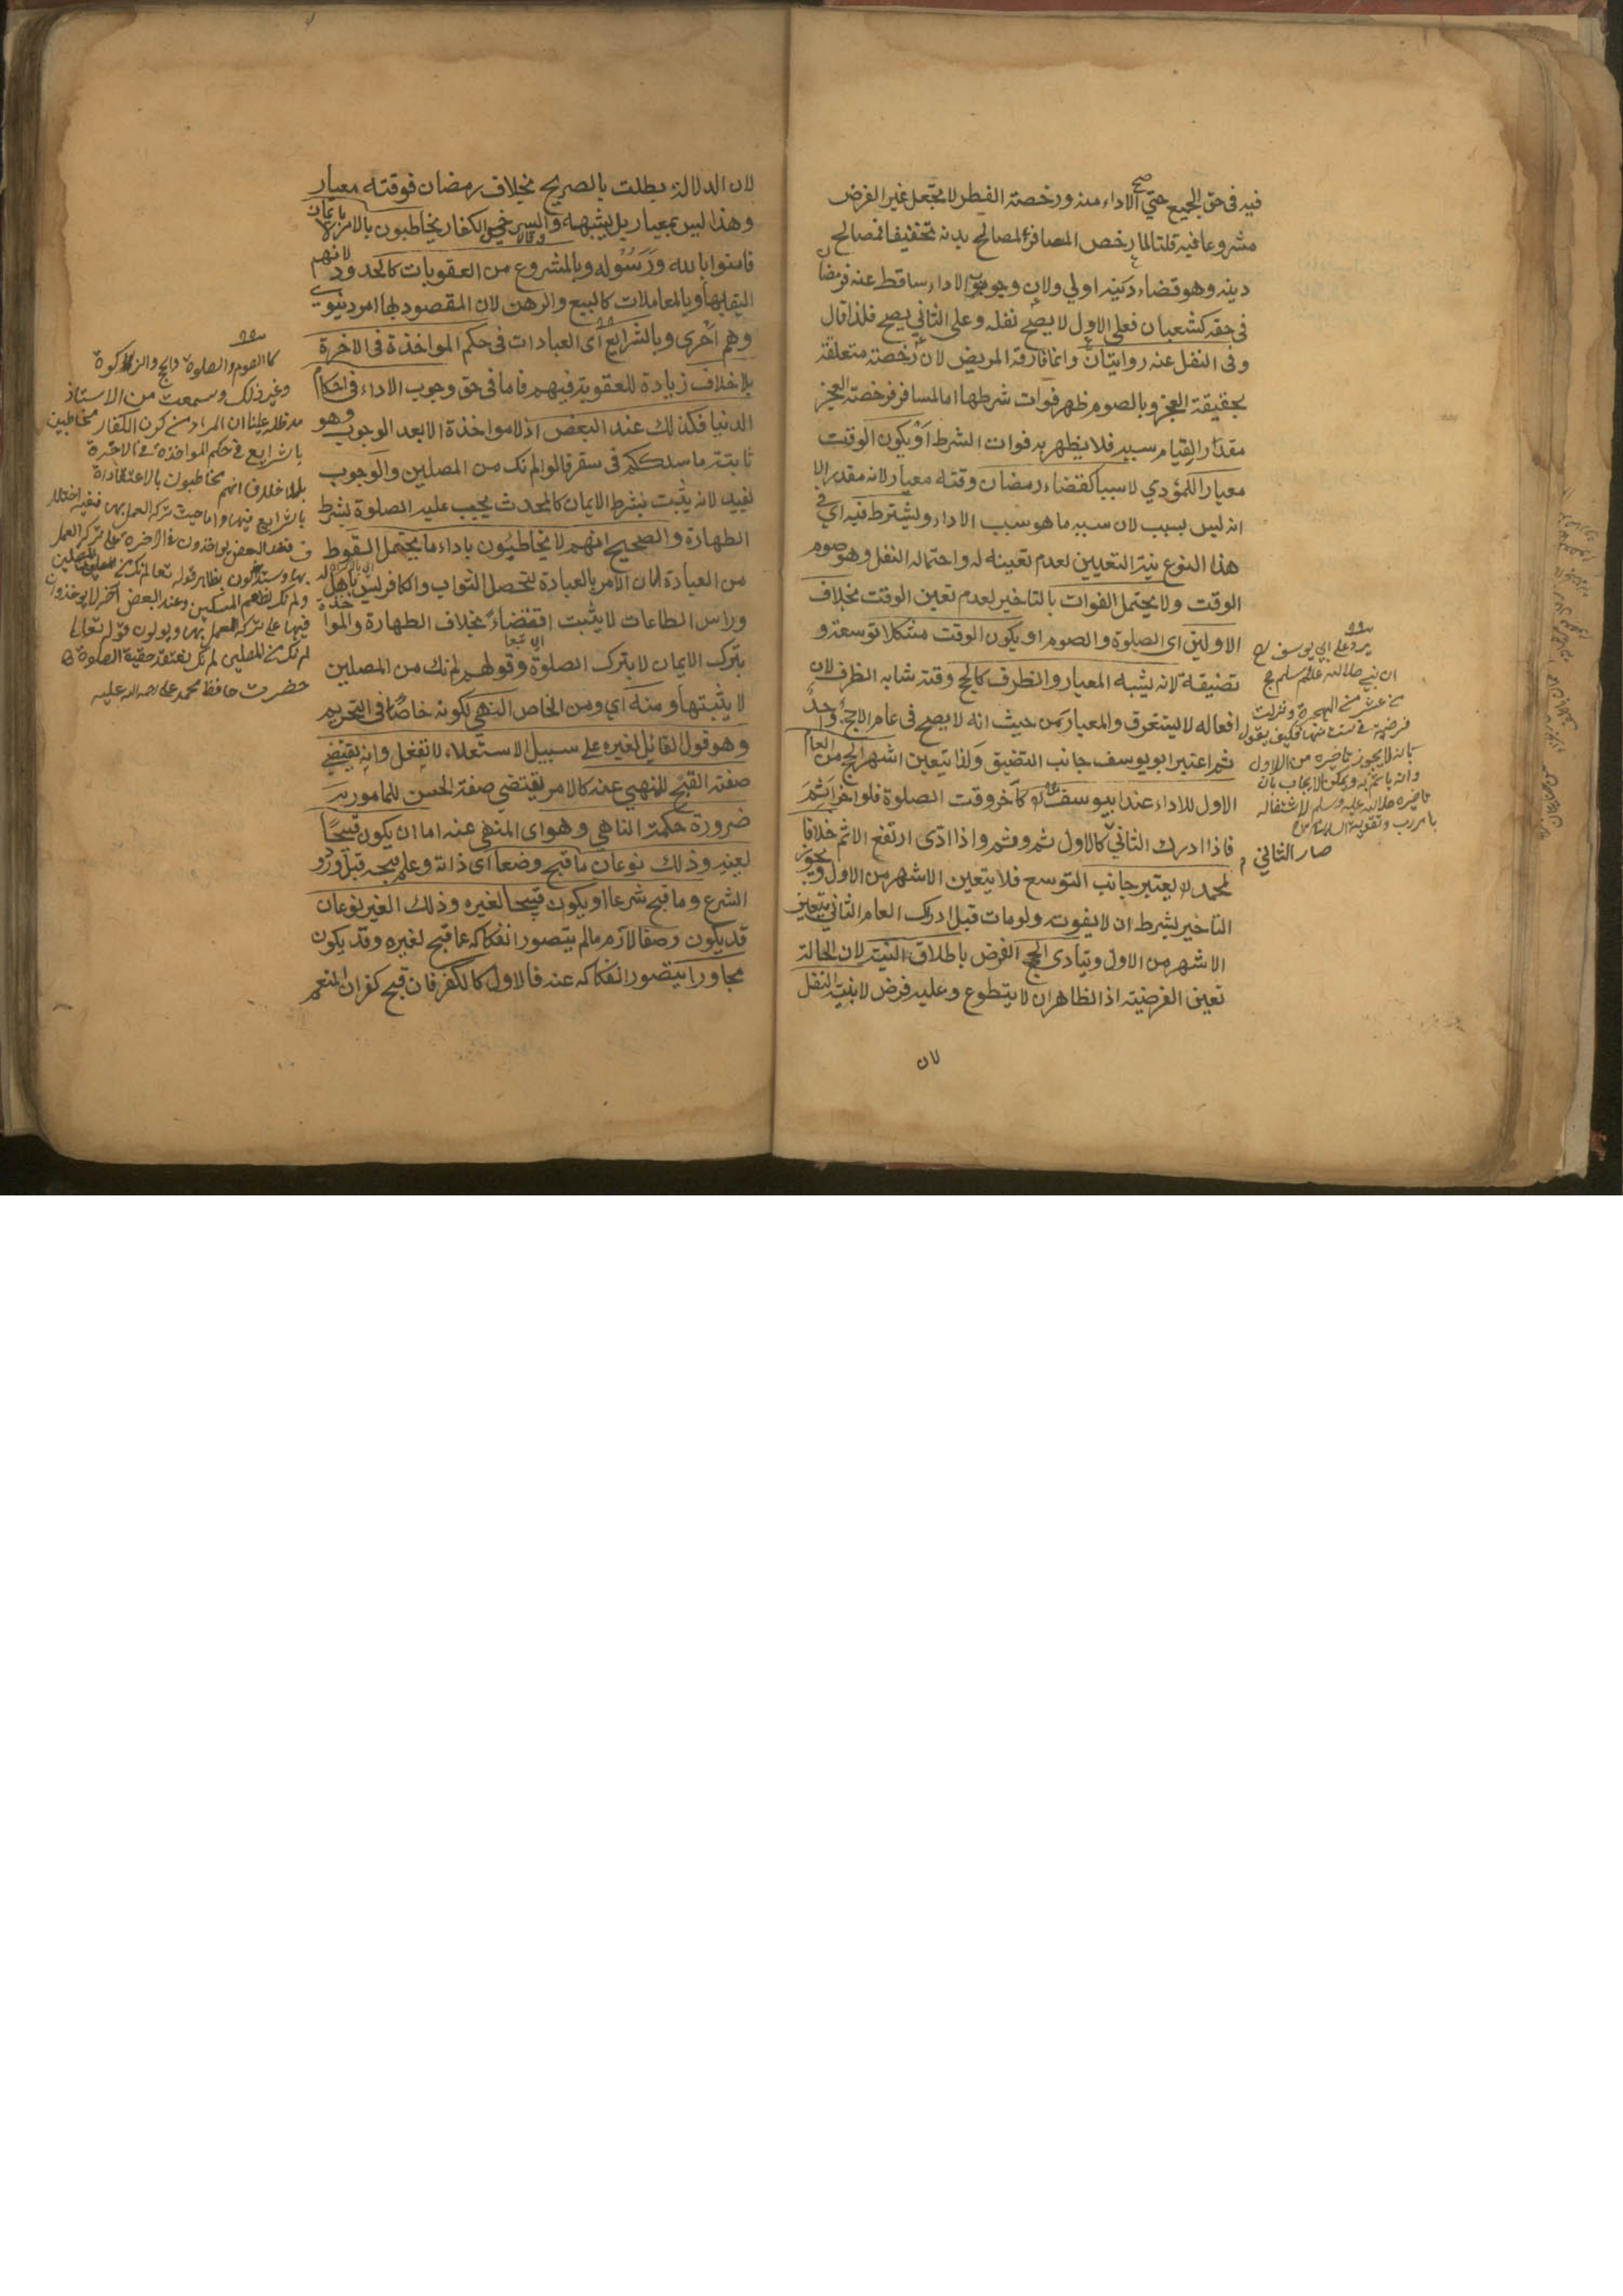 فيه في حق الجميع حتي صح الاداء منه ورخصة الفطر لا تجعل غير الفرض
مشروعا فيه قلنا لما رخص المسافر لمصالح بدنه تخفيفا فمصالح
دينه وهو قضاء دينه اولي ولان وجوب الاداء ساقط عنه فرمضان
في حقه كشعبان فعلي الاول لا يصح نفله وعلي الثاني يصح فلذا قال
وفي النفل عنه روايتان وانما فارقه المريض لان رخصته متعلقة
بحقيقة العجز وبالصوم ظهر فوات شرطها اما المسافر فرخصته العجز
مقدار القيام سببه فلا يظهر به فوات الشرط او يكون الوقت
معيارا للمؤدي لا سببا كقضاء رمضان وقته معيار لانه مقدر الا
انه ليس بسبب لان سببه ما هو سبب الاداء ويشترط فيه اي في
هذا النوع نية التعيين لعدم تعينه له واحتماله النفل وهو صوم
الوقت ولا يحتمل الفوات بالتاخير لعدم تعين الوقت بخلاف
الاولين اي الصلوة والصوم او يكون الوقت مشكلا توسعة و
تضيقة لانه يشبه المعيار والظرف كالحج وقته شابه الظرف لان
افعاله لا يستغرق والمعيار من حيث انه لا يصح في عام الا حج واحد
ثم اعتبر ابو يوسف جانب التضيق ولذا يتعين اشهر الحج من العام
الاول للاداء عند ابي يوسف كآخر وقت الصلوة فلو اخر اثم
فاذا ادرك الثاني كالاول ثم وثم واذا ادي ارتفع الاثم خلافا
لمحمد لا يعتبر جانب التوسع فلا يتعين الاشهر من الاول ويجوز
التاخير بشرط ان لا يفوت ولو مات قبل ادرك العام الثاني يتعين
الاشهر من الاول ويتادي الحج الفرض باطلاق النية لان الحالة
تعين الفرضية اذ الظاهر ان لا يتطوع وعليه فرض لا بنية النفل
لان
يرد علي ابي يوسف رح
ان نبي صلي الله عليه وسلم حج
فرضية في سنة منها فكيف يقول
بانه لا يجوز تاخيره من الاول
وانه ياثم به ويمكن الايجاب بان
تاخيره صلي الله عليه وسلم لاشتغاله
صار الثاني
لان الدلالة بطلت بالصريح بخلاف رمضان فوقته معيار
وهذا ليس بمعيار بل يشبهه والكفار يخاطبون بالامر بالايمان
فامنوا بالله ورسوله وبالمشروع من العقوبات كالحدود لانهم
اليق بها وبالمعاملات كالبيع والرهن لان المقصود بها امر دنيوي
وهم احري وبالشرايع اي العبادات في حكم المواخذة في الاخرة
بلا خلاف زيادة للعقوبة فيهم فاما في حق وجوب الاداء في احكام
الدنيا فكذلك عند البعض اذ لا مواخذة الا بعد الوجوب وهو
ثابتة ما سلككم في سقر قالوا لم نك من المصلين والوجوب
يفيد لانه يثبت بشرط الايمان كالمحدث يجب عليه الصلوة بشرط
الطهارة والصحيح انهم لا يخاطبون باداء ما يحتمل السقوط
من العبادة لان الامر بالعبادة لتحصل الثواب والكافر ليس باهل له
وراس الطاعات لا يثبت اقتضاء بخلاف الطهارة والمواخذة
بترك الايمان لا بترك الصلوة وقولهم لم نك من المصلين
لا يثبتها ومنه اي ومن الخاص النهي لكونه خاصا في التحريم
وهو قول القائل لغيره علي سبيل الاستعلاء لا تفعل وانه يقتضي
صفة القبح للمنهي عنه كالامر يقتضي صفة الحسن للمامور به
ضرورة حكمة الناهي وهو اي المنهي عنه اما ان يكون قبيحا
لعينه وذلك نوعان ما قبح وضعا اي ذاته وعلم قبحه قبل ورود
الشرع وما قبح شرعا او يكون قبيحا لغيره وذلك الغير نوعان
قد يكون وصفا لازم ما لم يتصور انفكاكه عما قبح لغيره وقد يكون
مجاورا يتصور انفكاكه عنه فالاول كالكفر فان قبح كفران المنعم
كالصوم والصلوة والحج والزكوة
وغير ذلك وسمعت من الاستاذ
مد ظله علينا ان المراد من كون الكفار مخاطبين
بالشرايع في حكم المواخذة في الاخرة
بلا خلاف انهم مخاطبون بالاعتقاد
بالشرايع فيها واما حيث ترك العمل بها ففيه اختلاف
فعند البعض يواخذون في الاخرة علي ترك العمل
بها ويستدلون بظاهر قوله تعالي لم نك من المصلين
ولم نك نطعم المسكين وعند البعض اخر لا يواخذون
فيها علي ترك العمل بها ويولون قوله تعالي
لم نك من المصلين لم نك نعتقد حقية الصلوة
حضرت حافظ محمد علي رحمة الله عليه